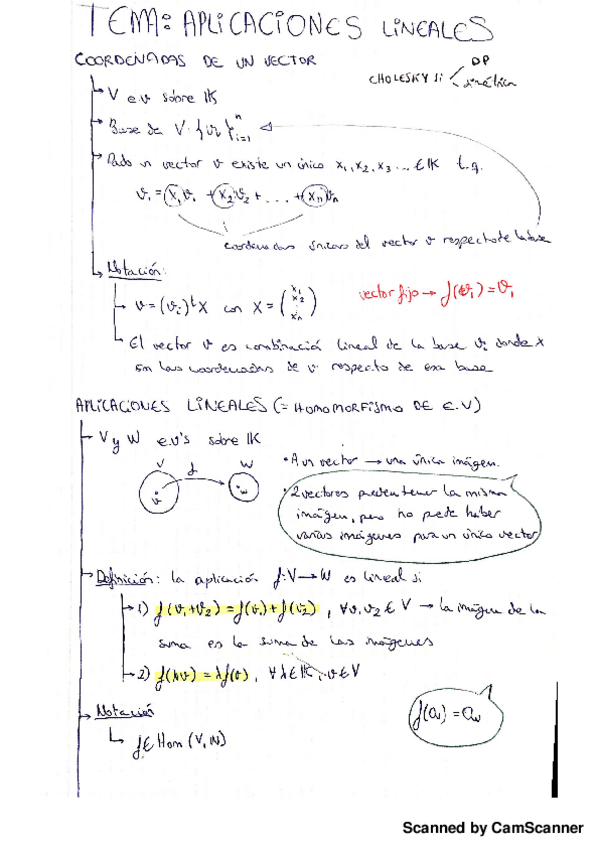 TEMA: APLICACIONES LINEALES
COORDENADAS DE UN VECTOR
CHOLESKY si
DP
simétrica
V e.v sobre IK
Base de V: {vi}ⁿi=1
Dado un vector v existe un único x1, x2, x3 ... ∈ IK t.q.
v1 = x1v1 + x2v2 + ... + xnvn
coordenadas únicas del vector v respecto de la base
Notación:
v = (vi)ᵗ X con X = (x1 x2 : xn)
vector fijo → f(vi) = vi
El vector v es combinación lineal de la base vi donde X
son las coordenadas de v respecto de esa base
APLICACIONES LINEALES (= HOMOMORFISMO DE E.V)
V y W e.v's sobre IK
V f W
v w
• A un vector → una única imágen.
• 2 vectores pueden tener la misma
imágen, pero no puede haber
varias imágenes para un único vector
Definición: la aplicación f: V → W es lineal si
1) f(v1+v2) = f(v1)+f(v2), ∀v1v2 ∈ V → la imágen de la
suma es la suma de las imágenes
2) f(λv) = λf(v), ∀λ∈IK, v∈V
Notación
f∈Hom (V,W)
f(0v) = 0w
Scanned by CamScanner